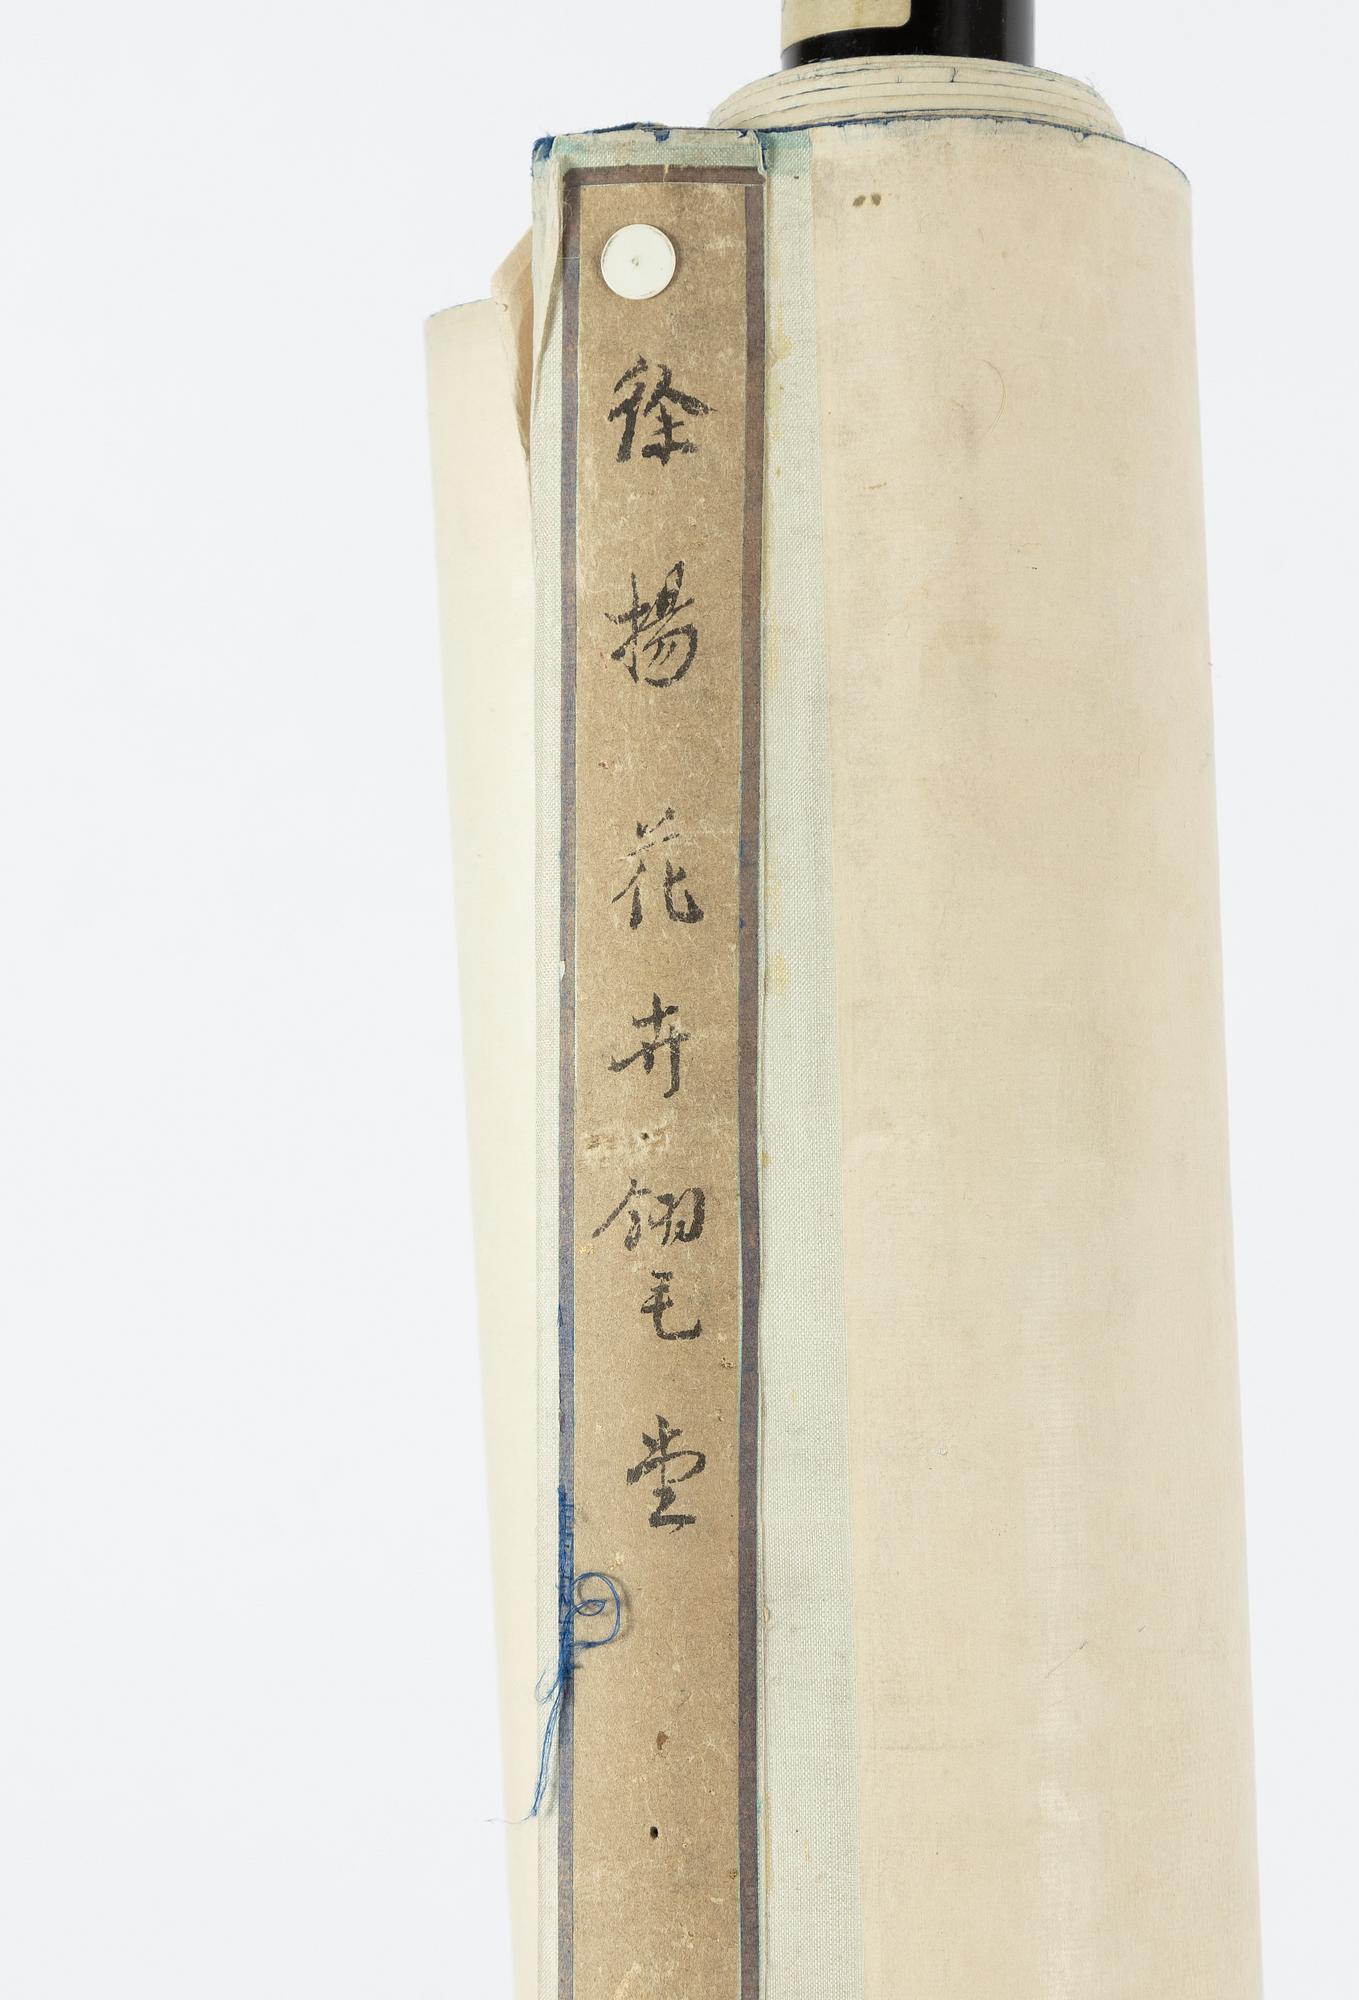 徐揚花卉翎毛堂